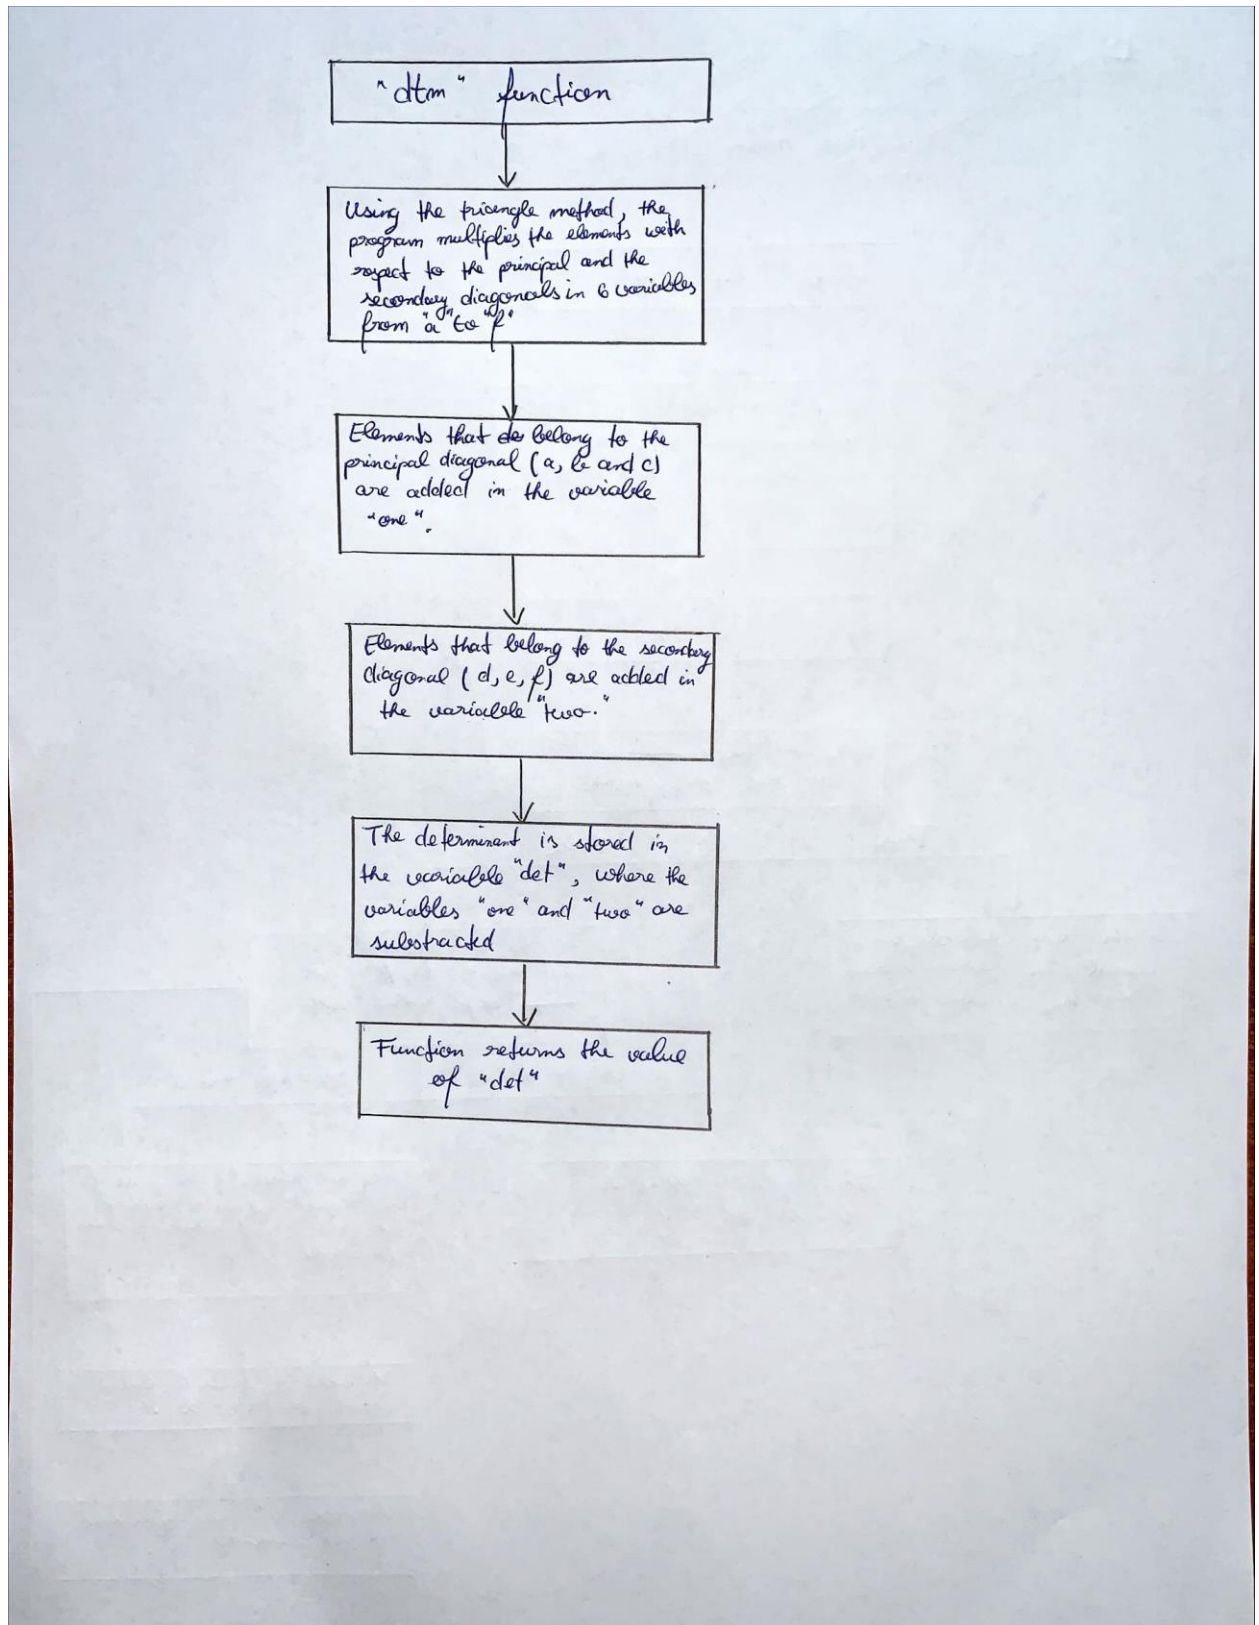 "dtm" function
Using the triangle method, the
program multiplies the elements with
respect to the principal and the
secondary diagonals in 6 variables
from "a" to "f"
Elements that do belong to the
principal diagonal (a, b and c)
are added in the variable
"one".
Elements that belong to the secondary
diagonal (d, e, f) are added in
the variable "two."
The determinant is stored in
the variable "det", where the
variables "one" and "two" are
substracted
Function returns the value
of "det"